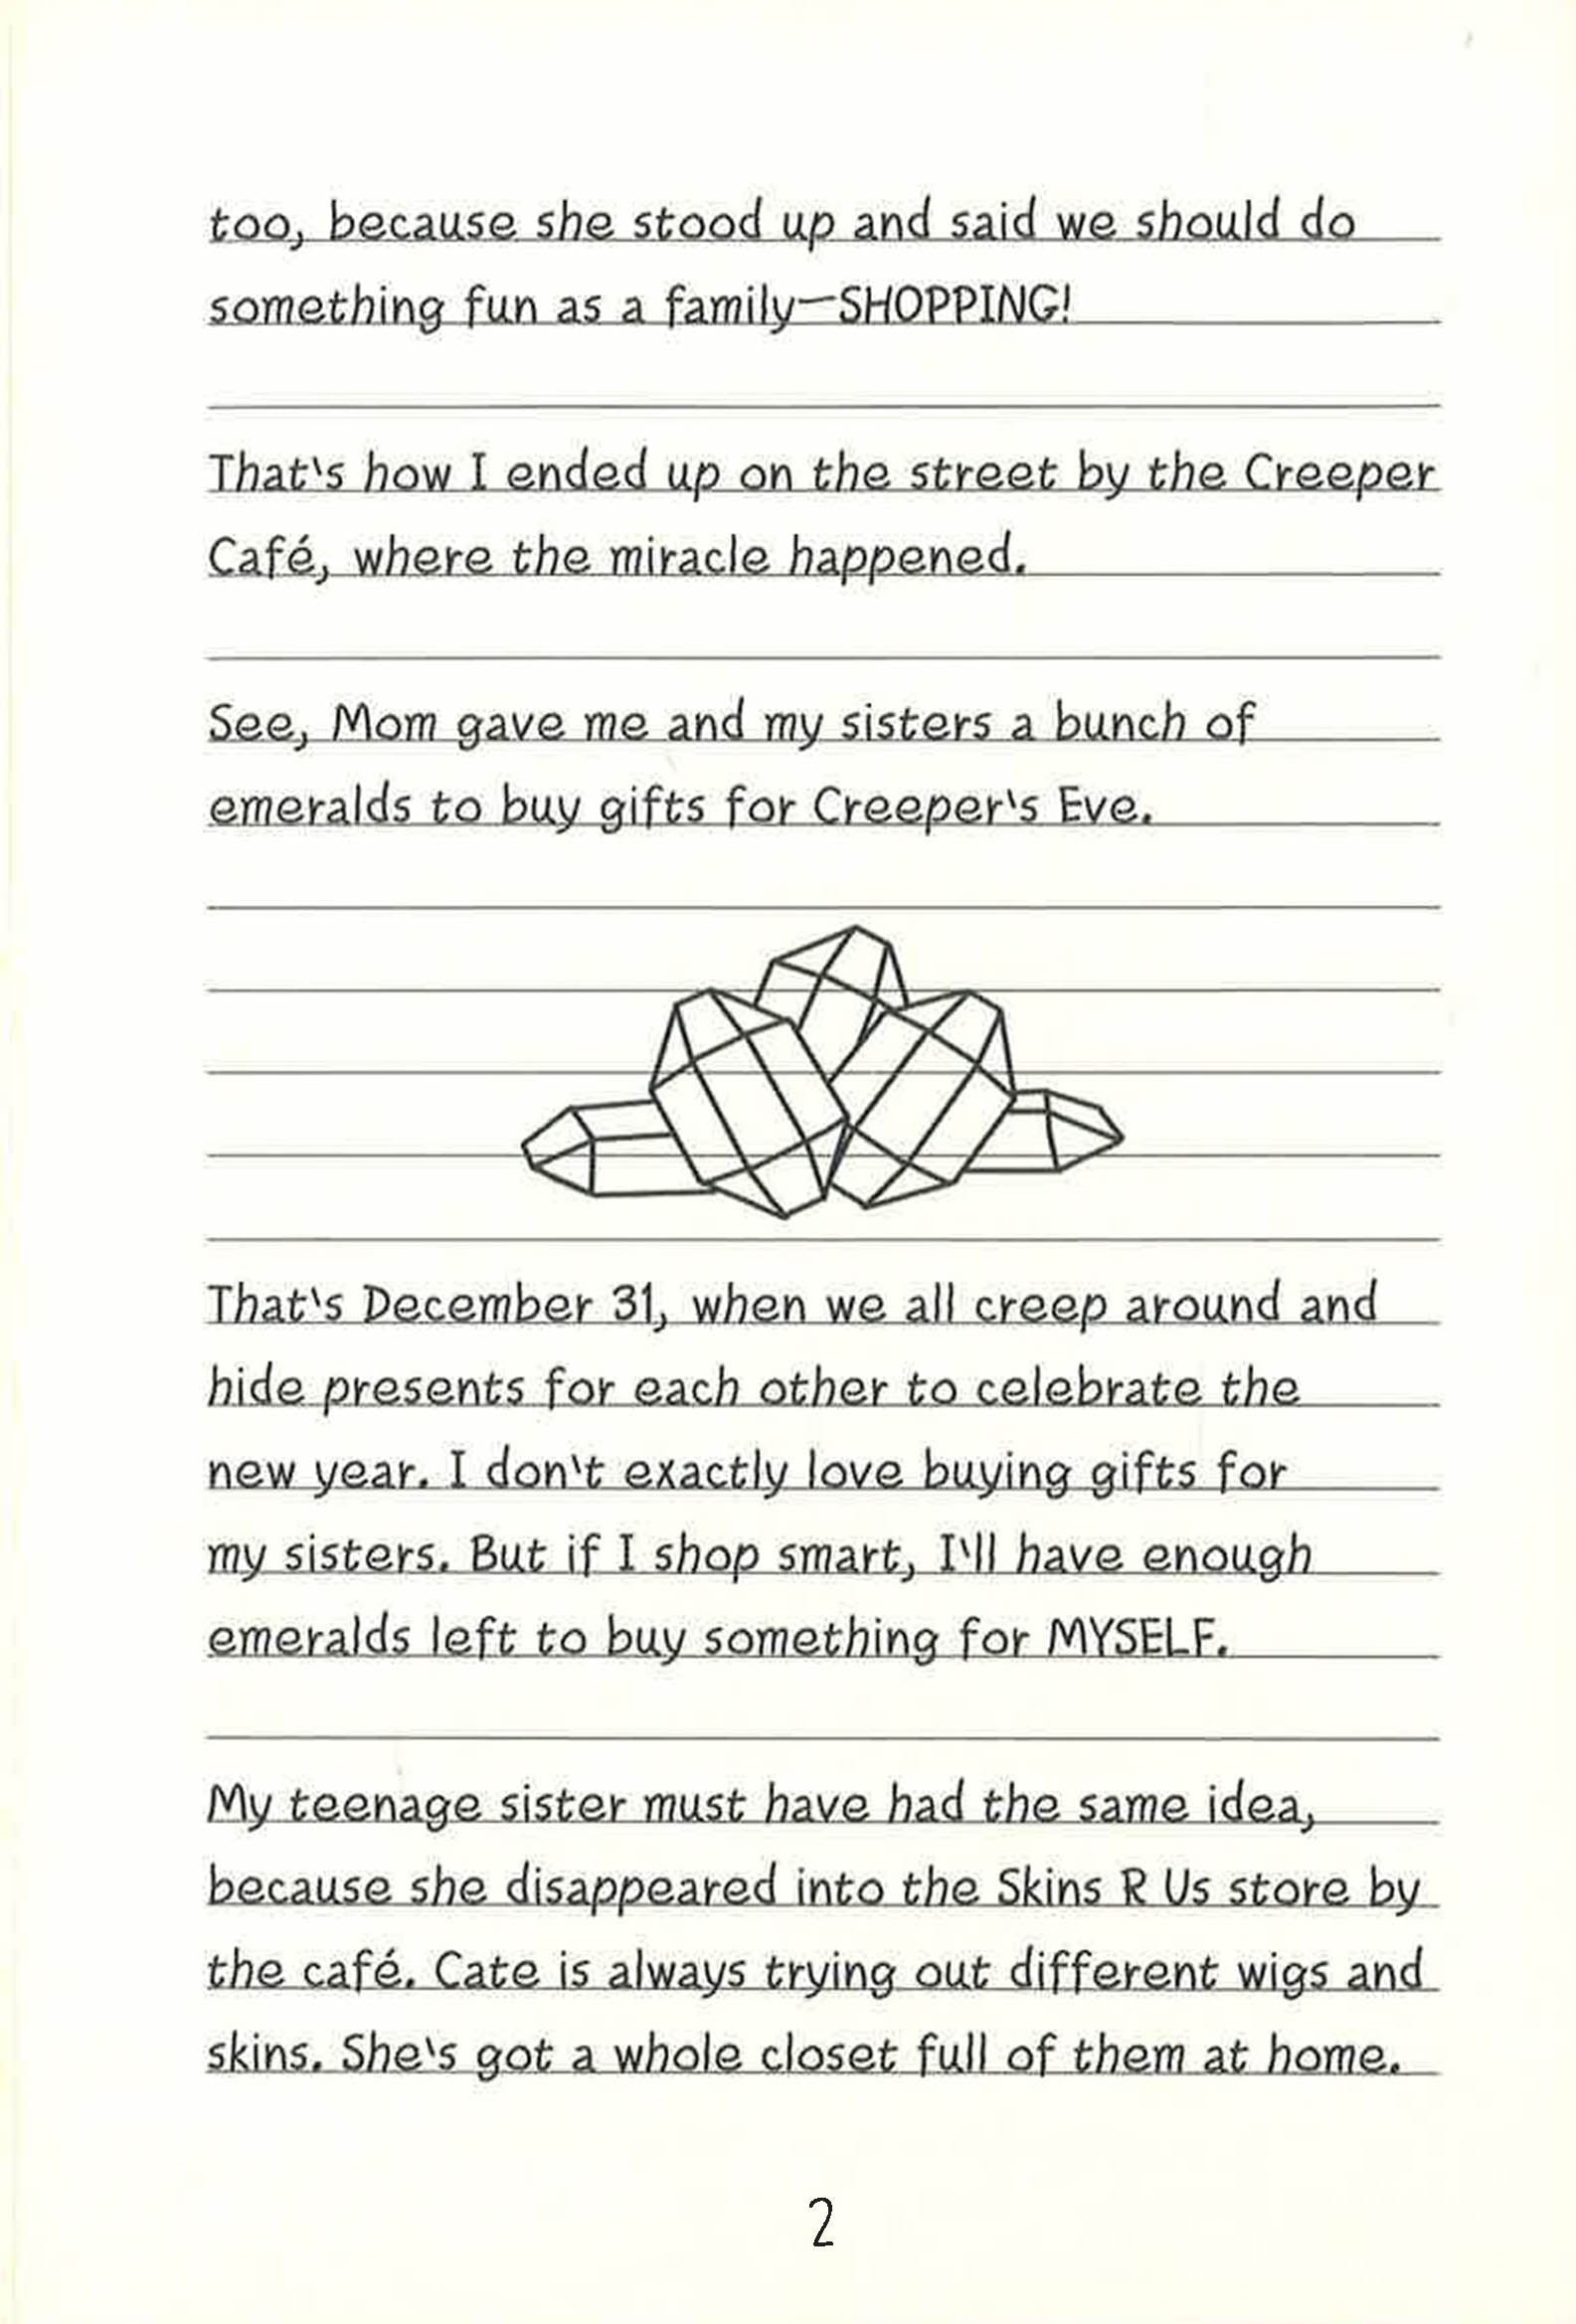 too, because she stood up and said we should do
something fun as a family—SHOPPING!
That's how I ended up on the street by the Creeper
Café, where the miracle happened.
See, Mom gave me and my sisters a bunch of
emeralds to buy gifts for Creeper's Eve.
That's December 31, when we all creep around and
hide presents for each other to celebrate the
new year. I don't exactly love buying gifts for
my sisters. But if I shop smart, I'll have enough
emeralds left to buy something for MYSELF.
My teenage sister must have had the same idea,
because she disappeared into the Skins R Us store by
the café. Cate is always trying out different wigs and
skins. She's got a whole closet full of them at home.
2